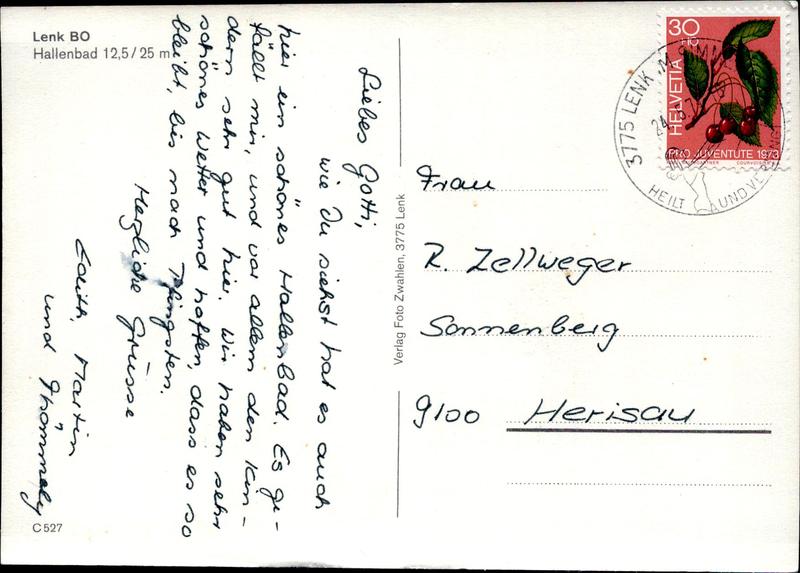 Lenk BO
Hallenbad 12,5/25 m
Liebes Gotti,
wie Du siehst hat es auch
hier ein schönes Hallenbad. Es ge-
fällt mir, und vor allem den Kin-
dern sehr gut hier. Wir haben sehr
schönes Wetter und hoffen, dass es so
bleibt, bis nach Pfingsten.
Herzliche Grüsse
Edith, Martin
und Thömmely
C 527
Verlag Foto Zwahlen, 3775 Lenk
30
PRO JUVENTUTE 1973
HELVETIA
COURVOISIER
3775 LENK
24.
HEILT UND
Frau
R. Zellweger
Sonnenberg
9100 Herisau